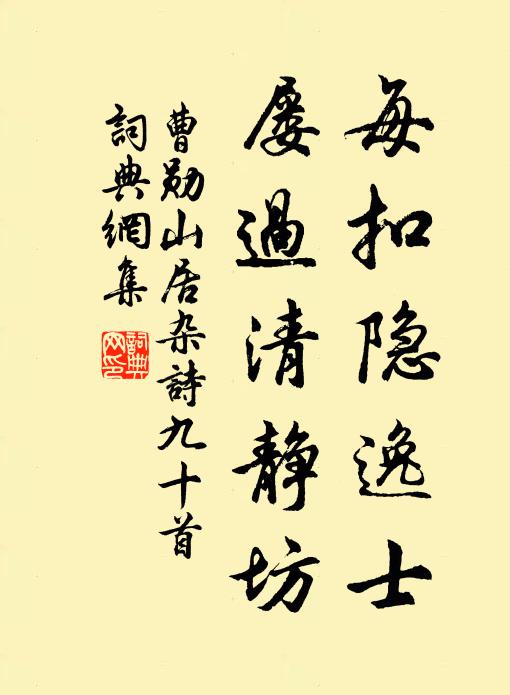 每扣隐逸士
屡過清静坊
曹勋山居杂詩九十首
詞典網集
詞典网印